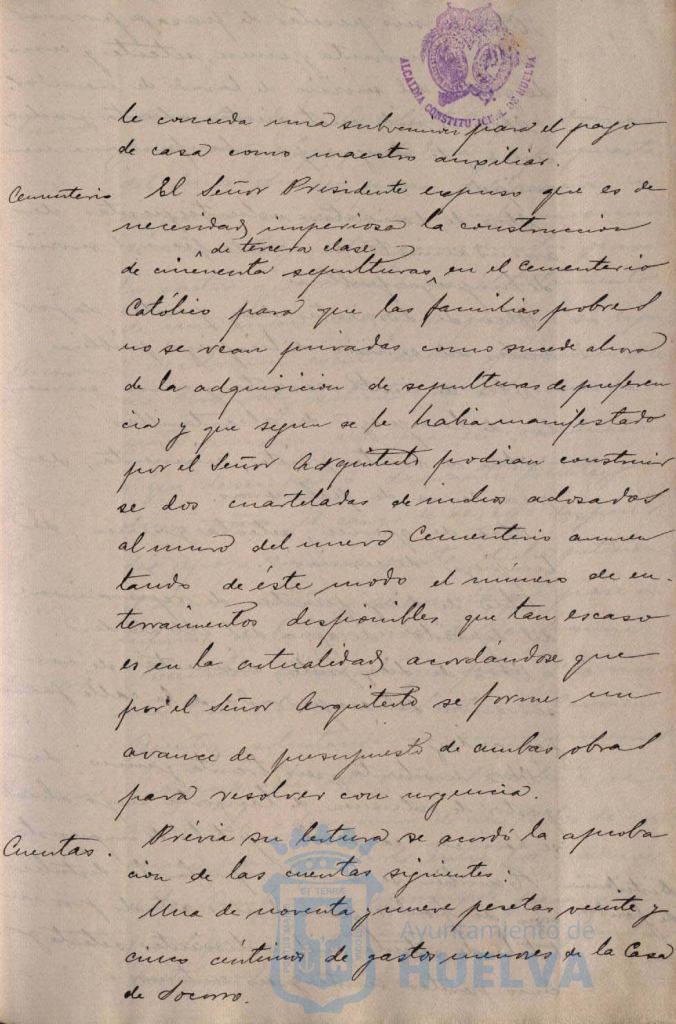 ALCALDIA CONSTITUCIONAL DE HUELVA
le conceda una subvencion para el pago
de casa como maestro auxiliar.
Cementerio
El Señor Presidente expuso que es de
necesidad imperiosa la construccion
de tercera clase
de cincuenta sepulturas, en el cementerio
Católico para que las familias pobres
no se vean privadas como sucede ahora
de la adquisicion de sepulturas de preferen
cia y que segun se le habia manifestado
por el Señor Arquitecto podrian construir
se dos cuarteladas de nichos adosados
al muro del nuevo Cementerio aumen
tando de éste modo el número de en-
terramientos disponibles que tan escaso
es en la actualidad, acordándose que
por el Señor Arquitecto se forme un
avance de presupuesto de ambas obras
para resolver con urgencia.
Cuentas.
Prévia su lectura se acordó la aproba
cion de las cuentas siguientes:
Una de noventa y nueve pesetas veinte y
cinco céntimos de gastos menores de la Casa
de Socorro.
Ayuntamiento de
HUELVA